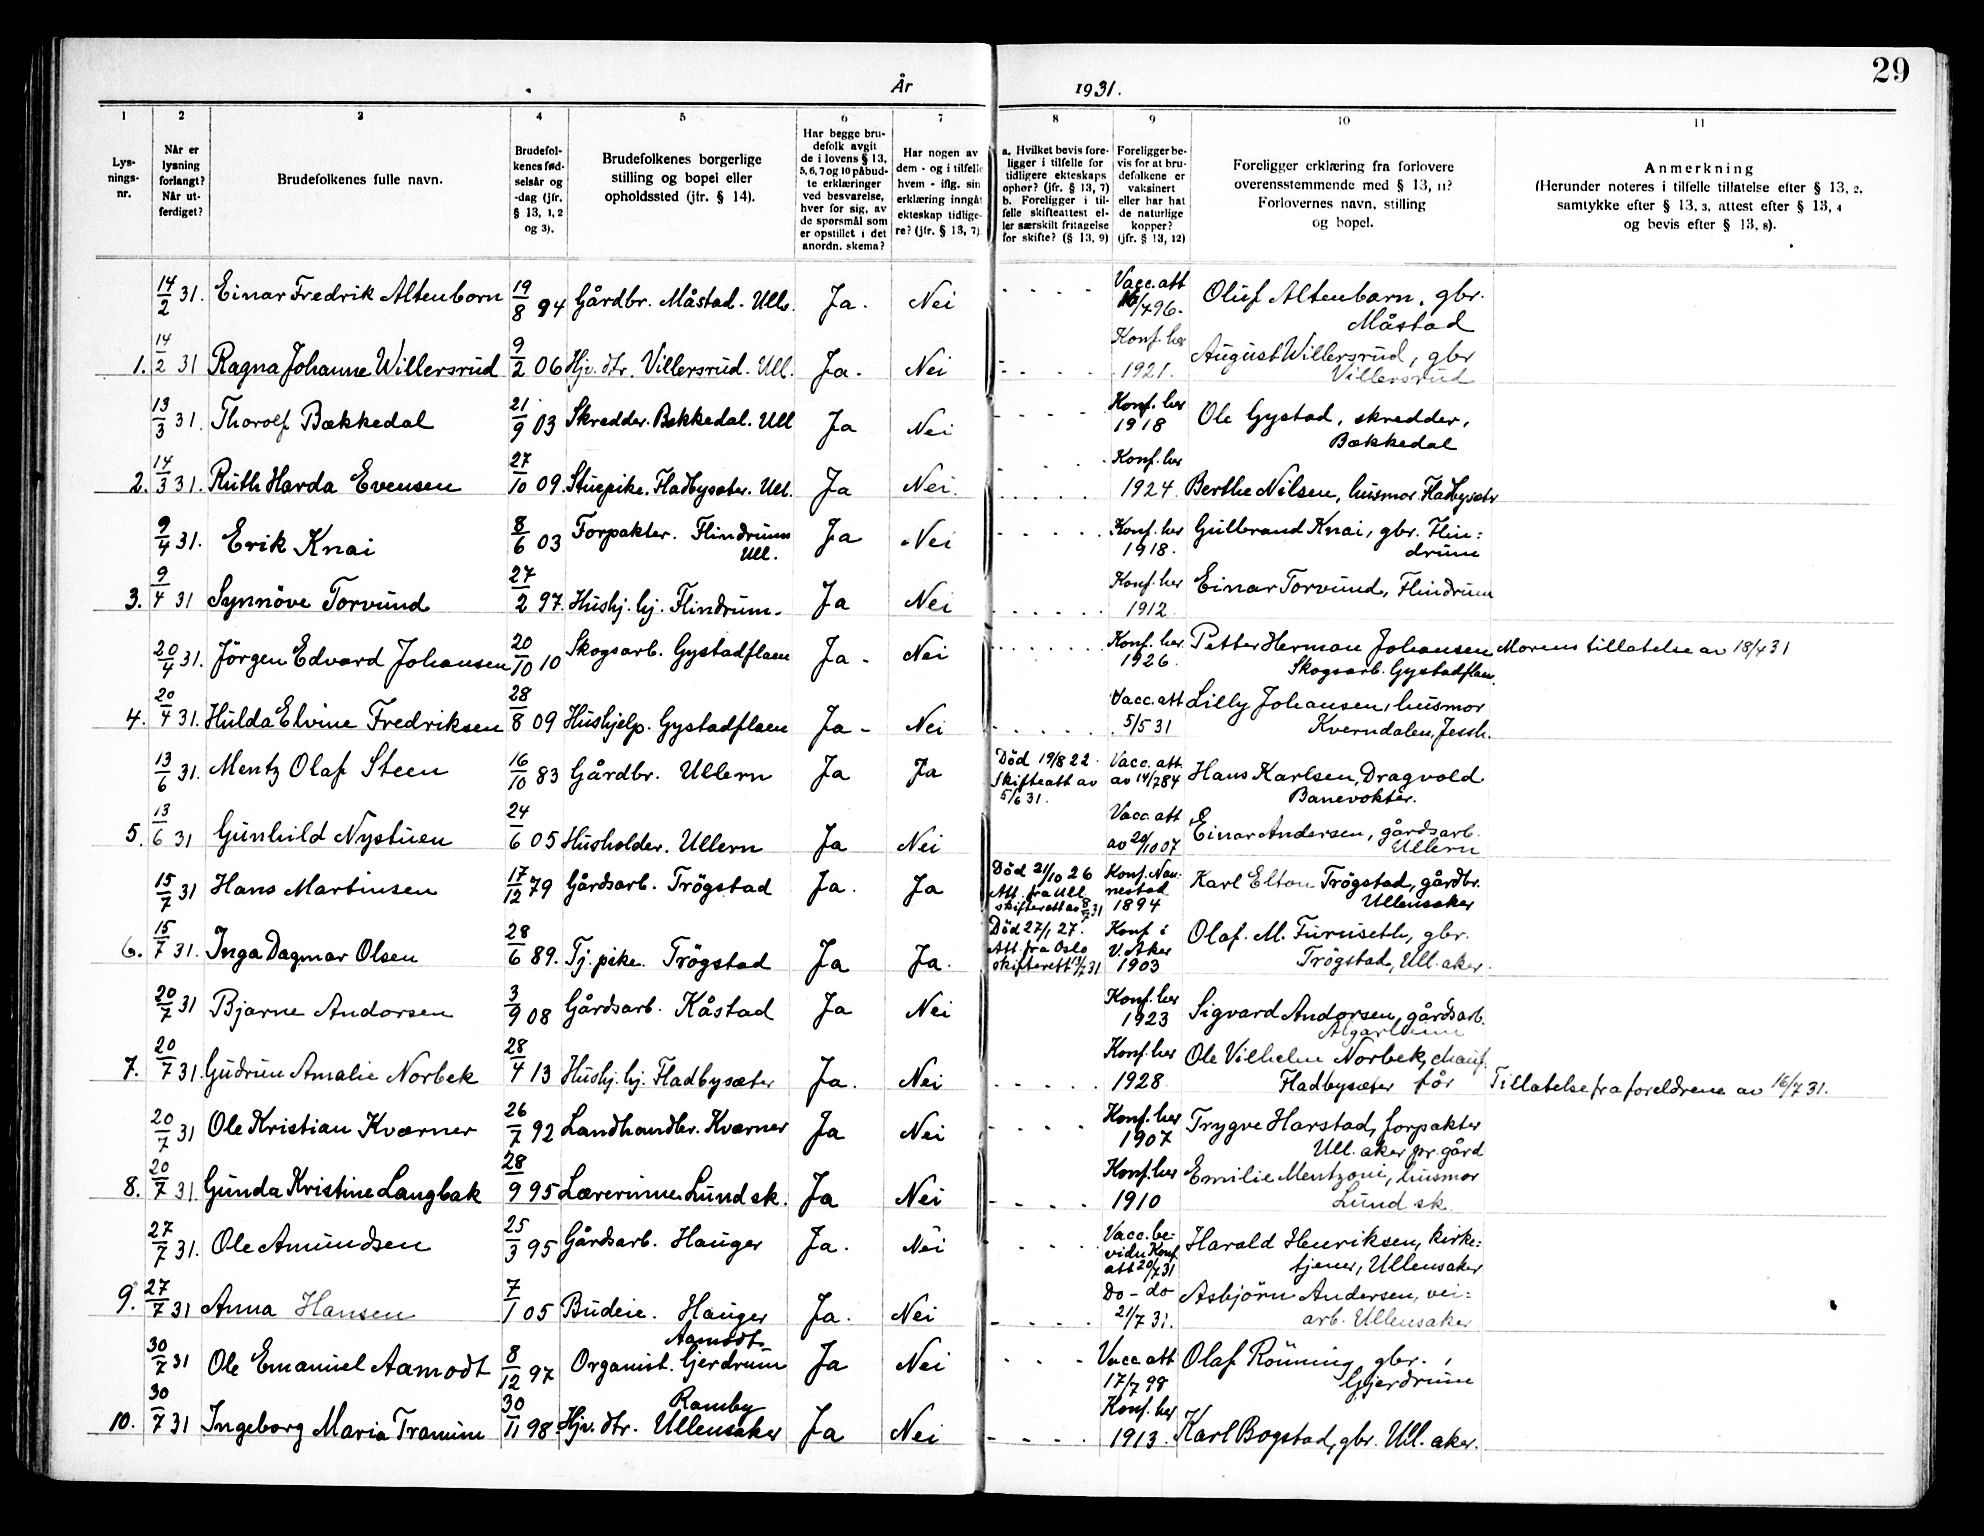 29
År 1931.
1 2 3 4 5 6 7 8 9 10 11
Lys-nings-nr.
Når er lysning forlangt? Når ut-ferdiget?
Brudefolkenes fulle navn.
Brudefol-kenes fød-selsår og -dag (jfr. § 13, 1, 2 og 3).
Brudefolkenes borgerlige stilling og bopel eller opholdssted (jfr. § 14).
Har begge bru-defolk avgit de i lovens § 13, 5, 6, 7 og 10 påbud-te erklæringer ved besvarelse, hver for sig, av de spørsmål som er opstillet i det anordn. skema?
Har nogen av dem - og i tilfelle hvem - iflg. sin erklæring inngåt ekteskap tidlige-re? (jfr. § 13, 7)
a. Hvilket bevis fore-ligger i tilfelle for tidligere ekteskaps ophør? (jfr. § 13, 7) b. Foreligger i til-felle skifteattest el-ler særskilt fritagelse for skifte? (§ 13, 9)
Foreligger be-vis for at bru-defolkene er vaksinert eller har hat de naturlige kopper? (jfr. § 13, 12)
Foreligger erklæring fra forlovere overensstemmende med § 13, 11? Forlovernes navn, stilling og bopel.
Anmerkning (Herunder noteres i tilfelle tillatelse efter § 13, 2, samtykke efter § 13, 3, attest efter § 13, 4 og bevis efter § 13, 8).
14/2 31. Einar Fredrik Altenborn 19/8 94 Gårdbr. Måstad. Ull. Ja. Nei Vacc. att /4 96. Oluf Altenborn, gbr. Måstad
1. 14/2 31 Ragna Johanne Willersrud 9/2 06 Hjv. dtr. Villersrud. Ull. Ja. Nei Konf. her 1921. August Willersrud, gbr Villersrud
13/3 31. Thorolf Bækkedal 21/9 03 Skredder. Bækkedal. Ull Ja Nei Konf. her 1918 Ole Gystad, skredder, Bækkedal
2. 14/3 31. Ruth Harda Evensen 27/10 09. Stuepike. Fladbysæter. Ull. Ja Nei. Konf. her 1924. Berthe Nilsen, husmor Fladbysæter
9/4 31. Erik Knai 8/6 03 Forpakter. Flindrum Ull. Ja Nei Konf. her 1918. Gulbrand Knai, gbr. Flin=drum
3. 9/4 31 Synnöve Torvund 27/2 97. Hushj. hj. Flindrum. Ja Nei Konf. her 1912. Einar Torvund, Flindrum
20/4 31. Jörgen Edvard Johansen 20/10 10 Skogsarb. Gystadflaen Ja. Nei Konf. her 1926. Petter Herman Johansen Skogsarb. Gystadflaen. Morens tillatelse av 18/4 31
4. 20/4 31. Hulda Elvine Fredriksen 28/8 09 Hushjelp. Gystadflaen Ja Nei Vacc. att 5/5 31 Lilly Johansen, husmor Kverndalen, Jessh.
13/6 31. Mentz Olaf Steen 16/10 83 Gårdbr. Ullern Ja Ja Död 19/8 22. Skifteatt av 5/6 31. Vacc. att av 14/7 84 Hans Karlsen, Dragvold Banevokter.
5. 13/6 31 Gunhild Nystuen 24/6 05 Husholder. Ullern Ja Nei Vacc. att av 20/10 07 Einar Andersen, gårdsarb. Ullern
15/7 31 Hans Martinsen 17/12 79 Gårdsarb. Trögstad Ja. Ja Död 21/10 26 Att. fra Ull. skifterett av 8/7 31 Konf. Nannestad 1894 Karl Elton Trögstad, gårdbr. Ullensaker
6. 15/7 31. Inga Dagmar Olsen 28/6 89. Tj. pike. Trögstad Ja Ja. Död 27/1 27. Att fra Oslo skifterett /7 31 Konf i V. Aker 1903 Olaf. M. Furuseth, gbr. Trögstad, Ull. aker.
20/7 31 Bjarne Andorsen 3/9 08 Gårdsarb. Kåstad Ja Nei Konf. her 1923 Sigvard Andorsen, gårdsarb. Algarheim
7. 20/7 31. Gudrun Amalie Norbek 28/4 13 Hushj. hj. Fladbysæter Ja. Nei Konf. her 1928 Ole Vilhelm Norbek, chauf-för Fladbysæter Tillatelse fra foreldrene av 16/7 31.
20/7 31 Ole Kristian Kværner 26/7 92 Landhandler. Kværner Ja Nei Konf. her 1907 Trygve Harstad, forpakter Ull. aker pr. gård
8. 20/7 31 Gunda Kristine Langbak 28/9 95 Lærerinne. Lund sk. Ja Nei Konf. her 1910 Emilie Mentzoni, husmor Lund sk.
27/7 31. Ole Amundsen 25/3 95 Gårdsarb. Hauger Ja. Nei Vacc. be=vidn Konf. att 20/7 31 Harald Henriksen, kirke=tjener, Ullensaker
9. 27/7 31 Anna Hansen 7/1 05 Budeie. Hauger Ja. Nei Do - do 21/7 31. Asbjörn Andersen, vei=arb. Ullensaker
30/7 31 Ole Emanuel Aamodt 8/12 97 Organist. Aamodt. Gjerdrum Ja Nei Vacc att 17/7 98 Olaf Rönning, gbr., Gjerdrum
10. 30/7 31 Ingeborg Maria Tranum 30/11 98. Hjv. dtr. Ramby Ullensaker Ja Nei Konf. her 1913. Karl Bogstad, gbr. Ull. aker.